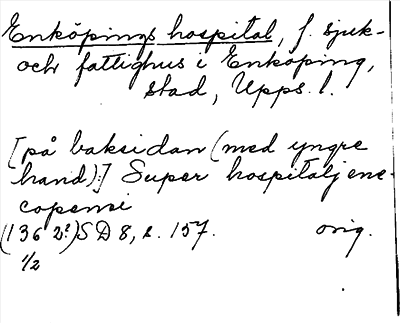 Enköpings hospital, f. sjuk-
och fattighus i Enköping,
stad, Upps. l.
[på baksidan (med yngre
hand):] Super hospitalj ene-
copensi
(136 2?) SD 8, s. 157. orig.
1/2